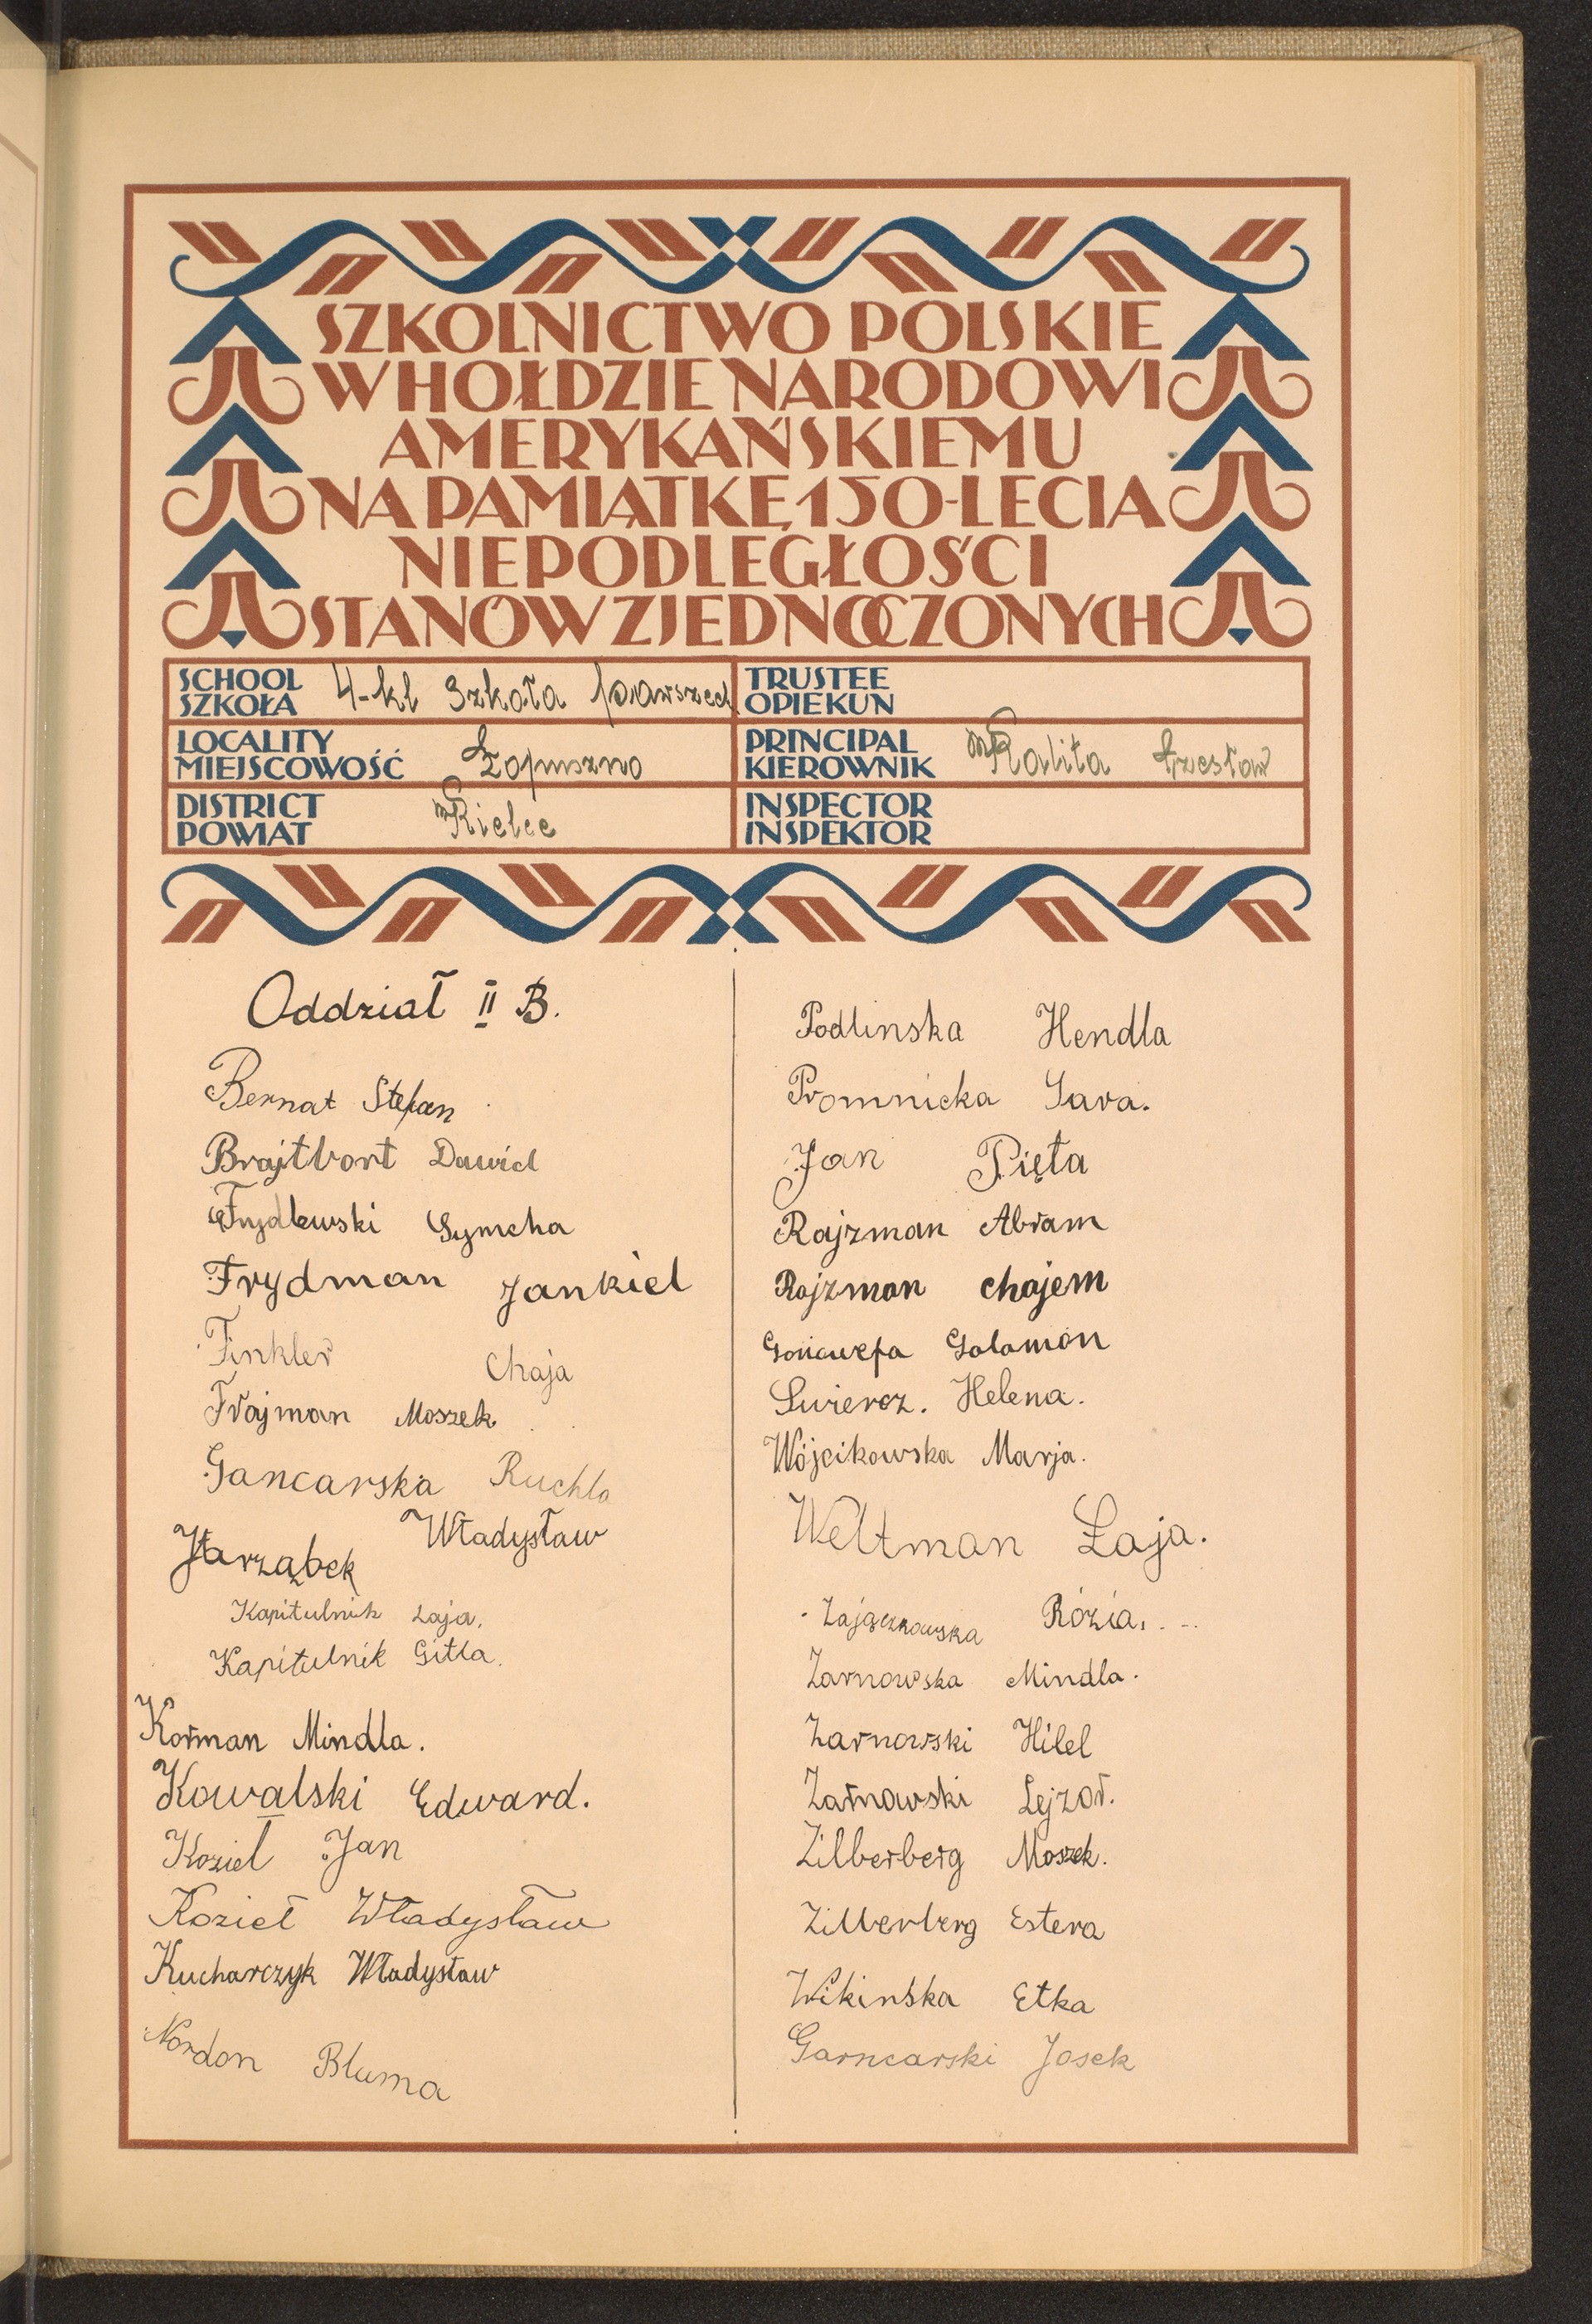 SZKOLNICTWO POLSKIE
W HOŁDZIE NARODOWI
AMERYKAŃSKIEMU
NA PAMIĄTKĘ 150-LECIA
NIEPODLEGŁOŚCI
STANÓW ZJEDNOCZONYCH
SCHOOL
SZKOŁA 4-kl Szkoła powszech
TRUSTEE
OPIEKUN
LOCALITY
MIEJSCOWOŚĆ Łopuszno
PRINCIPAL
KIEROWNIK Kalita Czesław
DISTRICT
POWIAT Kielce
INSPECTOR
INSPEKTOR
Oddział II B.
Bernat Stefan
Brajtbort Dawid
Frydlewski Symcha
Frydman Jankiel
Finkler Chaja
Frajman Moszek
Gancarska Ruchla
Jarząbek Władysław
Kapitulnik Łaja.
Kapitulnik Gitla.
Korman Mindla.
Kowalski Edward.
Kozieł Jan
Kozieł Władysław
Kucharczyk Władysław
Nordon Bluma
Podlinska Hendla
Promnicka Sara.
Jan Pięta
Rajzman Abram
Rajzman chajem
Solomon
Swiercz. Helena.
Wójcikowska Marja.
Weltman Łaja.
Zajączkowska Rózia.
Zarnowska Mindla.
Zarnowski Hilel
Zarnowski Lejzor.
Zilberberg Moszek.
Zilberberg Estera
Wikinska Etka
Garncarski Josek